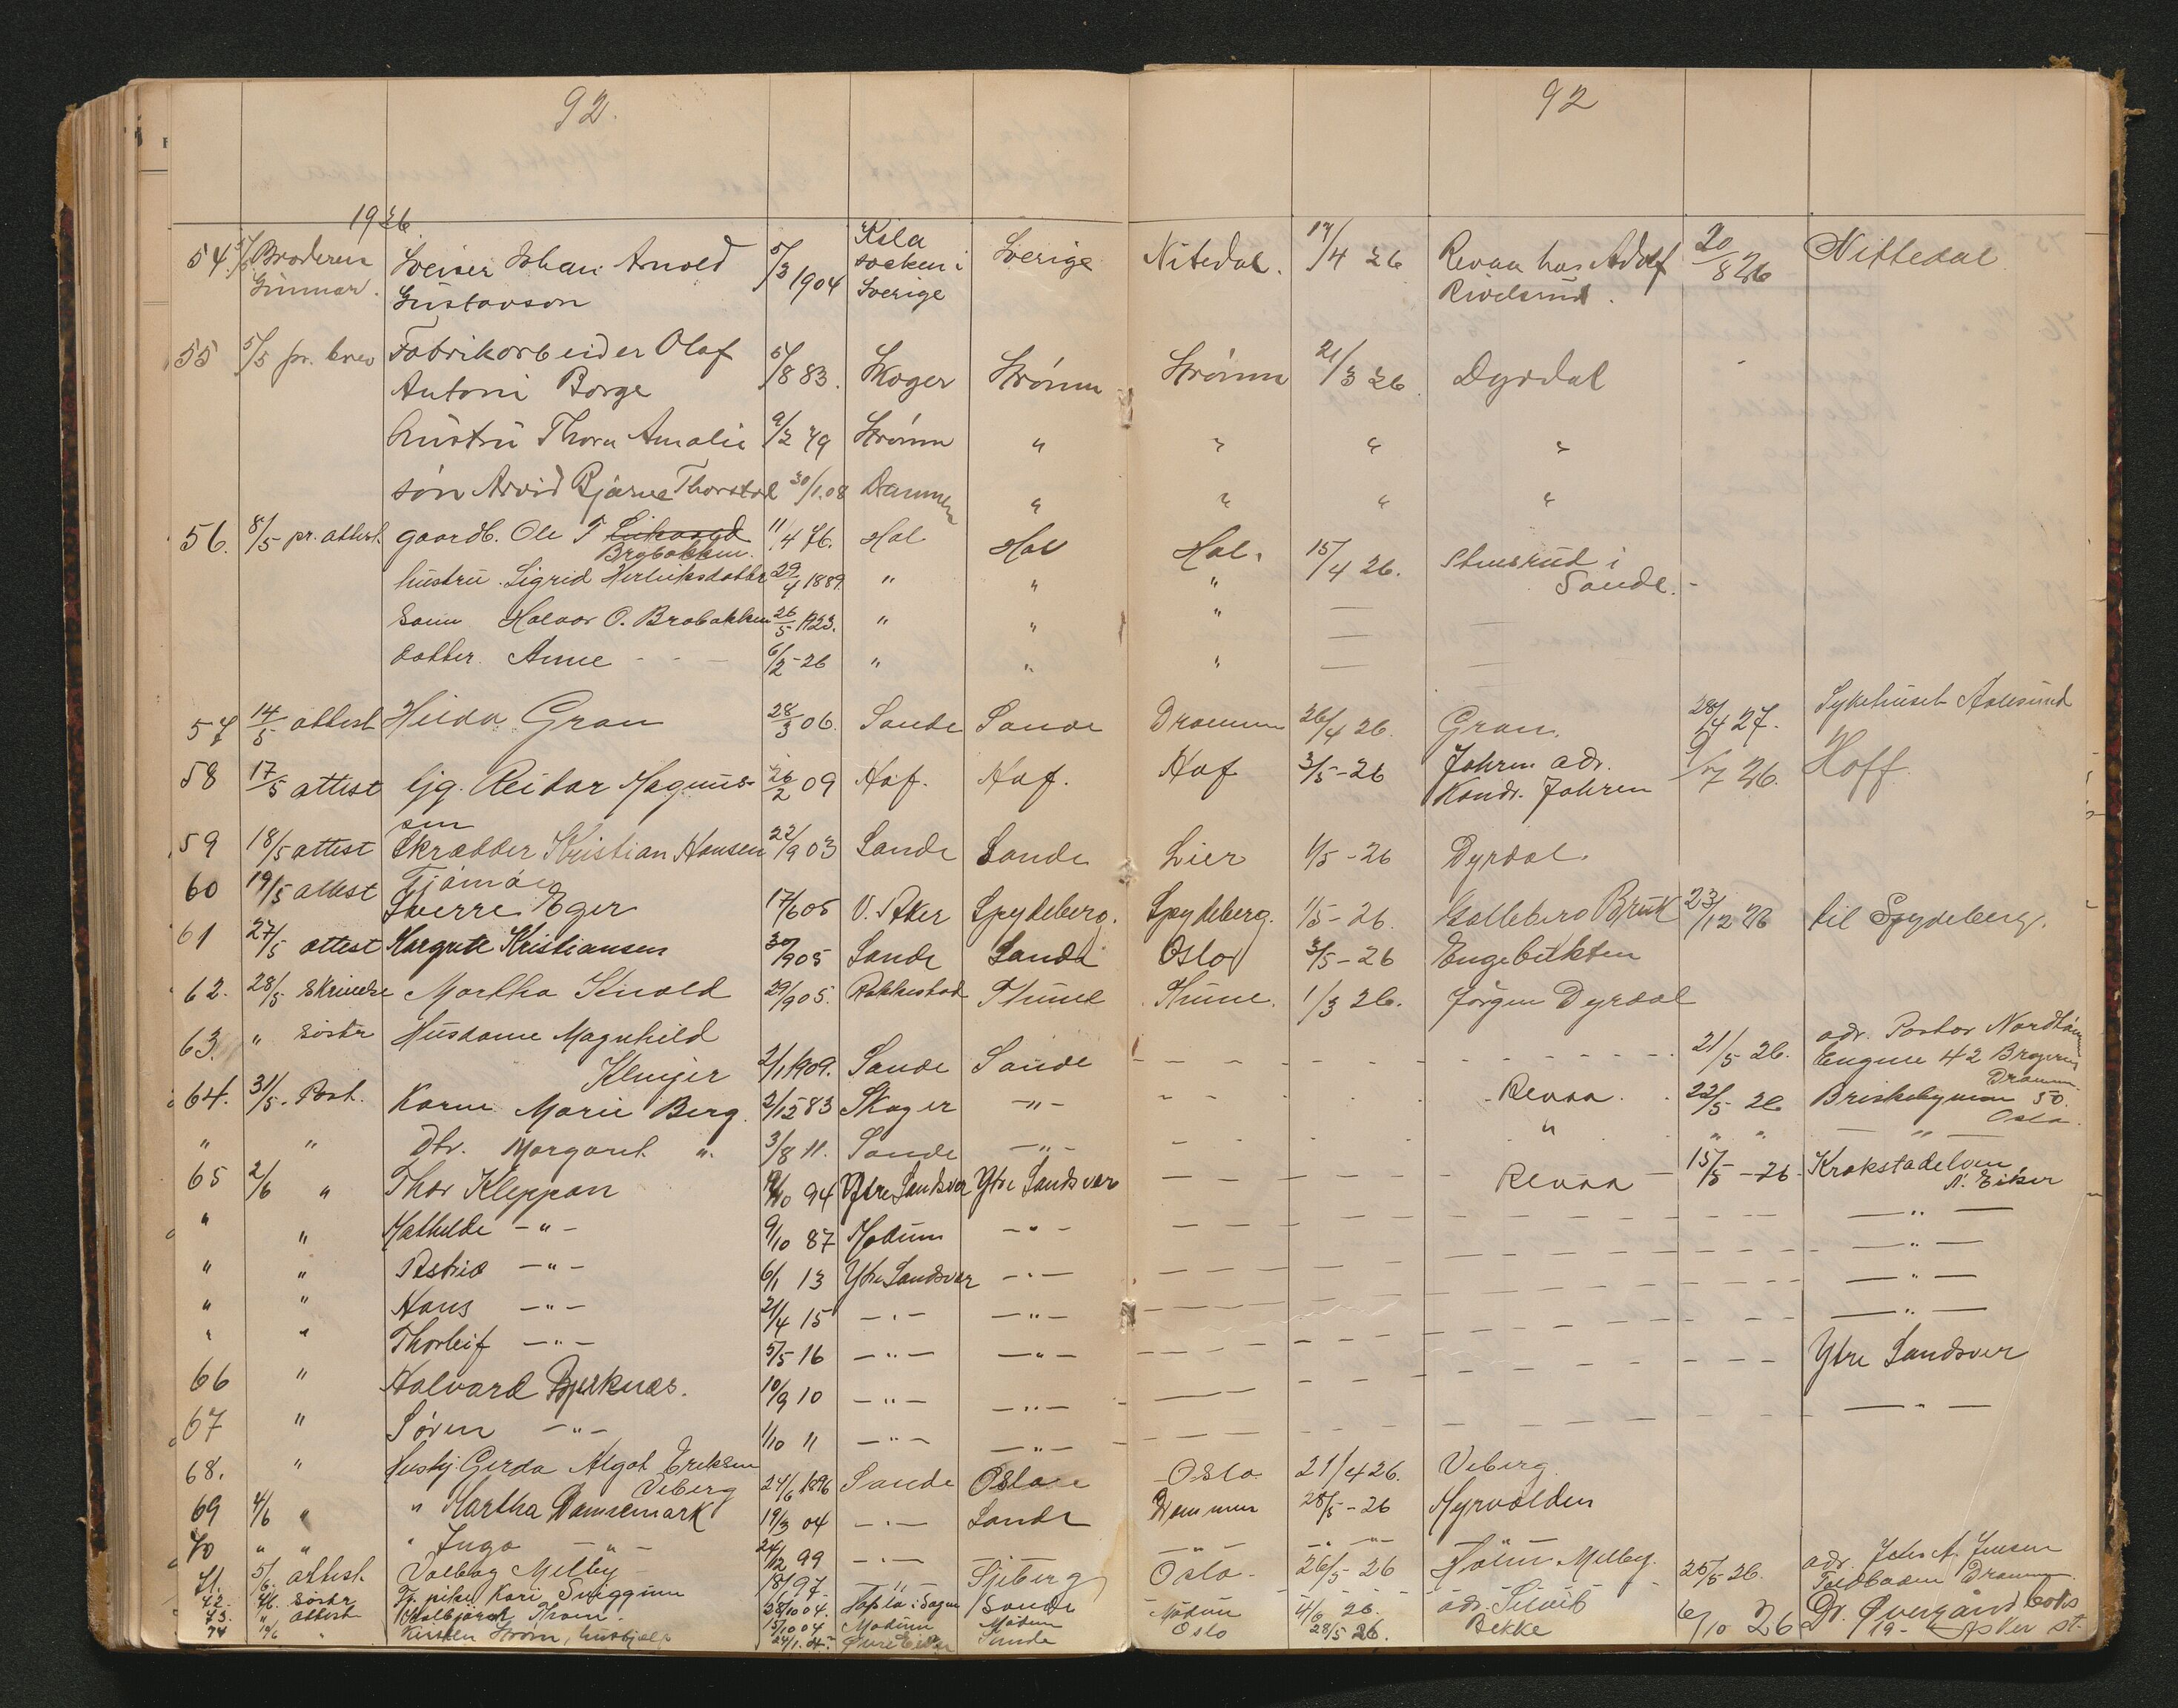 92.
92
1926
54. 5/5 Broderen Sveiser Johan Arnold 5/3 1904 Kila socken i Sverige Sverige Nitedal. 17/4 26 Revaa hos Adolf 20/8 26 Nittedal
Gunnar. Gustavson
55 5/5 pr. brev Fabrikarbeider Olaf 5/8 83. Skoger Strömm Strömm 21/3 26 Dyrdal -
Antoni Borge
hustru Thora Amalie 9/2 79 Strömm " " " "
sön Arvid Bjarne Thorstad 30/1.08 Dammen " " " "
56. 8/5 pr. attest gaardb. Ole T 11/4 76. Hol Hol Hol. 15/4 26. Stensrud i
Brobakken. Sande. -
hustru. Sigrid Herleiksdatter 29/4 1889. " " "
Sönn Halvor O. Brobakken 26/5 1923. " " " —
datter. Anne - - - 6/2-26 " " " —
57 14/5 attest Gran 28/3 06. Sande Sande Drammen 26/4 26. Gran. 28/4 27. Sykehuset Aalesund
58 17/5 attest gg. Reidar Magnus- 26/2 09 Hof. Hof. Hof 3/5-26 Johren adr. 9/7 26. Hoff.
sen Kondr. Johren
59 18/5 attest Skrædder Kristian Hansen 22/9 03 Sande Sande Lier 1/5-26 Dyrdal.
Tjömöe
60 19/5 attest Sverre Eger 17/6 05 V. Aker Spydeberg. Spydeberg. 1/5-26. Galleberg Bruk 23/12 26 til Spydeberg.
61 27/5 attest Margrete Kristiansen 30/9 05 Sande Sande Oslo 3/5-26 Engebukten
62. 28/5 Skrivelse Martha Knold 29/9 05. Rakkestad Thune Thune. 1/3 26. Jörgen Dyrdal
63. " söster Husdame Magnhild adr. Pastor
Klunger 2/1 1909. Sande Sande - - - 21/5 26. Engene 42 Bragernes Dramm.
64. 31/5. Post. Karen Marie Berg. 2/12 83 Skoger —"— - - Revaa. 22/5 26 Briskebyveien 50. Oslo.
" " Dtr. Margaret ". 3/8 11. Sande —"— - - " " " — " —
65 2/6 " Thor Kleppan 94 Ytre Sandsver Ytre Sandsver - - - Revaa 15/5-26. Krokstadelven N. Eiker
" " Mathilde —"— 9/10 87 Modum —"— - - - — " —
" " Astrid —"— 6/1 13 Ytre Sandsver —"— - - - — " —
" " Hans —"— 2/4 15 —"— —"— - - - — " —
" " Thorleif —"— 5/5 16 —"— —"— - - - — " —
66 " Halvard Bjerknes. 10/9 10 —"— —"— - - - Ytre Sandsver
67 " Sören —"— 1/10 11 —"— —"— - - - — " —
68. " Hushj. Gerda Algot Eriksen
Veberg 24/6 1896 Sande Oslo Oslo 21/4 26. Veberg.
69 4/6 " " Martha Damsemark 19/3 04 —"— Sande Drammen 28/5-26 Myrvolden
70 " " " Inga —"— 24/12 99 —"— —"— —"— —"— —"—
71. 5/6. attest. Valborg Melby 18/ 97. " Sjeberg Oslo. 26/5 26 Holm Melby. 25/5 26. adr. A. Jensen
72. 4/6. söster Tj. pike Kari 28/10 04. Sande Toldboden Dramm.
73. " attest 15/10 04 Modum Modum Modum 4/6 26. adr. Selvik 6/10 26 Dr. Övergaard
74 14/6 " Kirsten Ström, hushjælp 24/1. Övre Eiker Sande Oslo 28/5 26. Bekke 19- st.